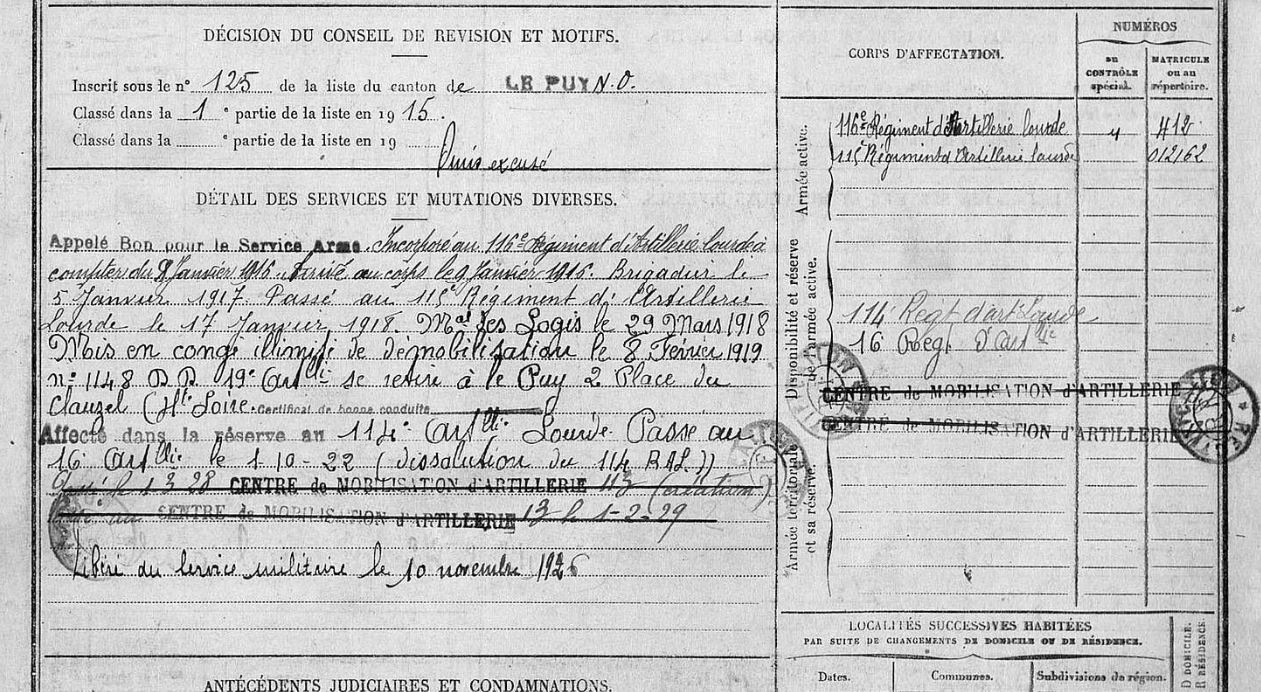 DÉCISION DU CONSEIL DE REVISION ET MOTIFS.
Inscrit sous le n° 125 de la liste du canton de LE PUY N.O.
Classé dans la 1 e partie de la liste en 19 15.
Classé dans la e partie de la liste en 19
Omis excusé
DÉTAIL DES SERVICES ET MUTATIONS DIVERSES.
Appelé Bon pour le Service Armé. Incorporé au 116e Régiment d'Artillerie lourde à
compter du Janvier 1916 arrivé au corps le 9 Janvier 1916. Brigadier le
5 Janvier 1917. Passé au 115e Régiment d' Artillerie
Lourde le 17 Janvier 1918. Mal des Logis le 29 Mars 1918
Mis en congé illimité de démobilisation le 8 Février 1919
n° 1148 19e Artllie se retire à le Puy 2 Place du
Clauzel (Hte Loire. Certificat de bonne conduite
Affecté dans la réserve au 114e Artllie Lourde. Passe au
16 Artllie le 1-10-22 (dissolution du 114 RAL))
le 1-3-28 CENTRE de MOBILISATION d'ARTILLERIE 113 (création)
au CENTRE de MOBILISATION d'ARTILLERIE 13 le 1-2-29
Libéré du service militaire le 10 novembre 192
ANTÉCÉDENTS JUDICIAIRES ET CONDAMNATIONS.
CORPS D'AFFECTATION.
NUMÉROS
au CONTRÔLE spécial.
MATRICULE ou au répertoire.
Armée active.
116e Régiment d'Artillerie lourde 412
115e Régiment d'Artillerie lourde 012162
Disponibilité et réserve de l'armée active.
114 Regt d'art Lourde
16 Reg. d'artie
CENTRE de MOBILISATION d'ARTILLERIE
CENTRE de MOBILISATION d'ARTILLERIE
Armée territoriale et sa réserve.
LOCALITÉS SUCCESSIVES HABITÉES
PAR SUITE DE CHANGEMENTS DE DOMICILE OU DE RÉSIDENCE.
Dates. Communes. Subdivisions de région.
D DOMICILE.
R RÉSIDENCE.